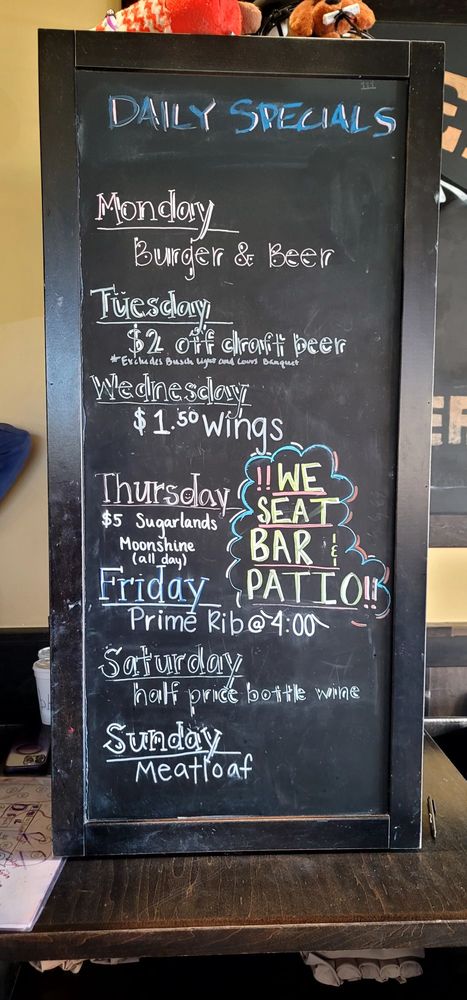 DAILY SPECIALS
Monday
Burger & Beer
Tuesday
$2 off draft beer
*Excludes Busch Light and Coors Banquet
Wednesday
$1.50 Wings
Thursday
$5 Sugarlands
Moonshine
(all day)
!! WE
SEAT
BAR &
PATIO!!
Friday
Prime Rib @ 4:00
Saturday
half price bottle wine
Sunday
Meatloaf